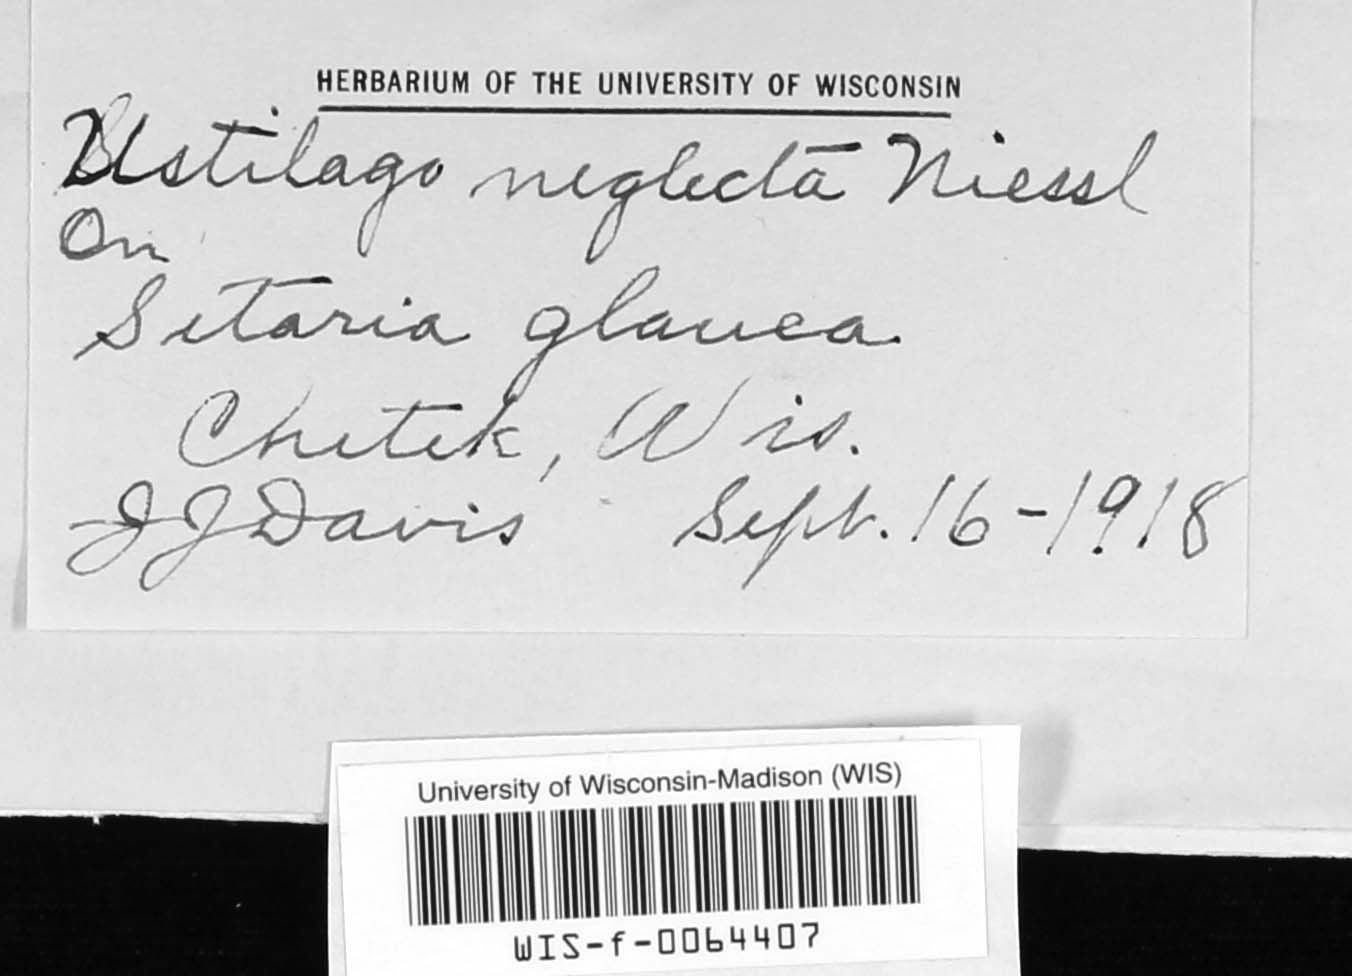 HERBARIUM OF THE UNIVERSITY OF WISCONSIN
Ustilago neglecta Niessl
On
Setaria glauca.
Chetek, Wis.
J J Davis Sept. 16-1918
University of Wisconsin-Madison (WIS)
WIS-f-0064407